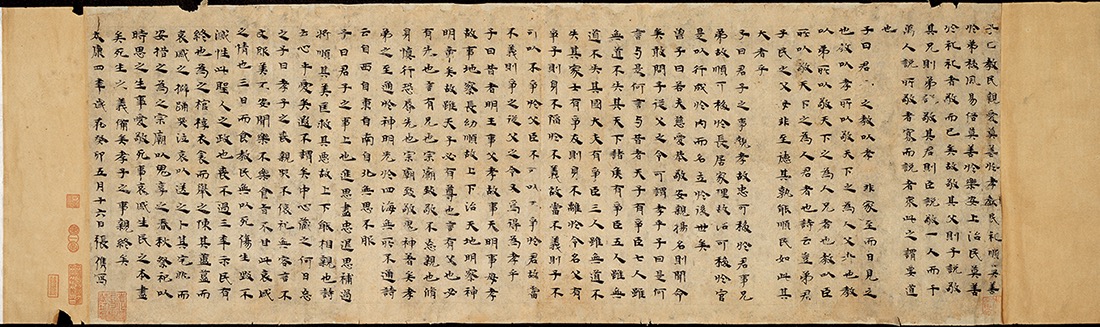 子曰教民親愛莫善於孝教民礼順莫善
於弟移風易俗莫善於樂安上治民莫善
於礼礼者敬而已矣故敬其父則子說敬
其兄則弟說敬其君則臣說敬一人而千
萬人說所敬者寡而說者衆此之謂要道
也
子曰君之教以孝非家至而日見之
也教以孝所以敬天下之為人父者也教
以弟所以敬天下之為人兄者也教以臣
所以敬天下之為人君者也詩云愷弟君
子民之父母非至德其孰能順民如此其
大者乎
子曰君子之事親孝故忠可移於君事兄
弟故順可移於長居家理故治可移於官
是以行成於内而名立於後世矣
曾子曰若夫慈愛恭敬安親揚名則聞命
矣敢問子從父之令可謂孝乎子曰是何
言與是何言與昔者天子有爭臣七人雖
無道不失其天下諸侯有爭臣五人雖無
道不失其國大夫有爭臣三人雖無道不
失其家士有爭友則身不離於令名父有
爭子則身不陷於不義故當不義則子不
可以不爭於父臣不可以不爭於君故當
不義則爭之從父之令又焉得為孝乎
子曰昔者明王事父孝故事天明事母孝
故事地察長幼順故上下治天地明察神
明章矣故雖天子必有尊也言有父也必
有先也言有兄也宗廟致敬不忘親也脩
身慎行恐辱先也宗廟致敬鬼神著矣孝
弟之至通於神明光於四海無所不通詩
云自西自東自南自北無思不服
子曰君子之事上也進思盡忠退思補過
將順其美匡救其惡故上下能相親也詩
云心乎愛矣遐不謂矣中心藏之何日忘
之子曰孝子之喪親哭不偯礼無容言不
文服美不安聞樂不樂食旨不甘此哀慼
之情也三日而食教民無以死傷生毀不
滅性此聖人之政也喪不過三年示民有
終也為之棺椁衣衾而舉之陳其簠簋而
哀慼之擗踊哭泣哀以送之卜其宅兆而
安措之為之宗廟以鬼享之春秋祭祀以
時思之生事愛敬死事哀慼生民之本盡
矣死生之義備矣孝子之事親終矣
太康四季歲在癸卯五月十六日張儁寫